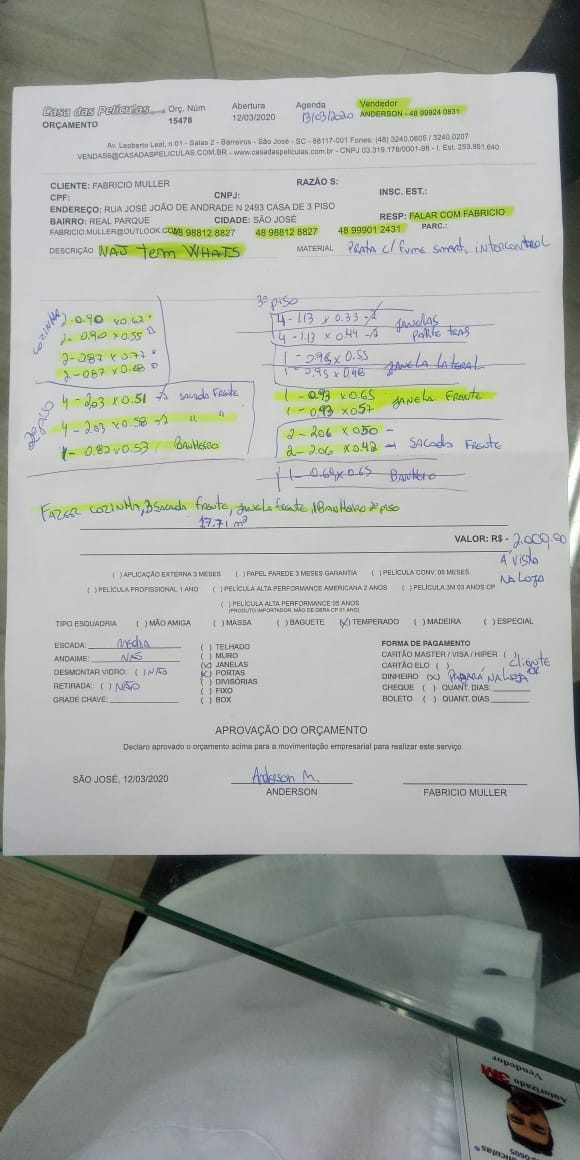 Casa das Películas
ORÇAMENTO
Orç. Núm
15478
Abertura
12/03/2020
Agenda
13/03/2020
Vendedor
ANDERSON - 48 99924 0831
Av. Leoberto Leal, n 01 - Salas 2 - Barreiros - São José - SC - 88117-001 Fones: (48) 3240.0605 / 3240.0207
VENDAS6@CASADASPELICULAS.COM.BR - www.casadaspeliculas.com.br - CNPJ 03.319.178/0001-98 - I. Est. 253.951.640
CLIENTE: FABRICIO MULLER RAZÃO S:
CPF: CNPJ: INSC. EST.:
ENDEREÇO: RUA JOSÉ JOÃO DE ANDRADE N 2493 CASA DE 3 PISO
BAIRRO: REAL PARQUE CIDADE: SÃO JOSÉ RESP: FALAR COM FABRICIO
FABRICIO.MULLER@OUTLOOK.COM 48 98812 8827 48 98812 8827 48 99901 2431 PARC.:
DESCRIÇÃO NAO TEM WHATS MATERIAL PRATA C/ FUME SMART, INTERCONTROL
COZINHA
2-0.90 x0.62
2-0.90 x0.55
2-0.87 x0.77
2-087 x0.68
2º PISO
4-203 x0.51 -> SACADA FRENTE
4-203 x0.58 -> " "
1-0.82x0.53 / BANHEIRO
3º PISO
4-1.13 x 0.33
4-1.13 x 0.44 -> JANELAS PARTE TRAS
1-0.98 x 0.55
1-0.95 x 0.48 JANELA LATERAL
1-0.93 x0.65
1-0.93 x0.57 JANELA FRENTE
2-206 x0.50
2-206 x0.42 - SACADA FRENTE
1-0.69x0.65 BANHEIRO
FAZER COZINHA, SACADA FRENTE, JANELA FRENTE, BANHEIRO 2º PISO
17.71 m²
VALOR: R$ - 2.000,00
A VISTA
NA LOJA
( ) APLICAÇÃO EXTERNA 3 MESES ( ) PAPEL PAREDE 3 MESES GARANTIA ( ) PELÍCULA CONV. 06 MESES
( ) PELÍCULA PROFISSIONAL 1 ANO ( ) PELÍCULA ALTA PERFORMANCE AMERICANA 2 ANOS ( ) PELÍCULA 3M 03 ANOS CP
( ) PELÍCULA ALTA PERFORMANCE 05 ANOS
(PRODUTO IMPORTADOR, MÃO DE OBRA CP 01 ANO)
TIPO ESQUADRIA ( ) MÃO AMIGA ( ) MASSA ( ) BAGUETE (X) TEMPERADO ( ) MADEIRA ( ) ESPECIAL
ESCADA: MEDIA
ANDAIME: NÃO
DESMONTAR VIDRO: ( ) NÃO
RETIRADA: ( ) NÃO
GRADE CHAVE:
( ) TELHADO
( ) MURO
(X) JANELAS
(X) PORTAS
( ) DIVISÓRIAS
( ) FIXO
( ) BOX
FORMA DE PAGAMENTO
CARTÃO MASTER / VISA / HIPER ( )
CARTÃO ELO ( ) CLIENTE
DINHEIRO (X) PAGARÁ NA LOJA OK
CHEQUE ( ) QUANT. DIAS:
BOLETO ( ) QUANT. DIAS
APROVAÇÃO DO ORÇAMENTO
Declaro aprovado o orçamento acima para a movimentação empresarial para realizar este serviço
SÃO JOSÉ, 12/03/2020
Anderson M.
ANDERSON
FABRICIO MULLER
Vendedor
Autorizado 3M